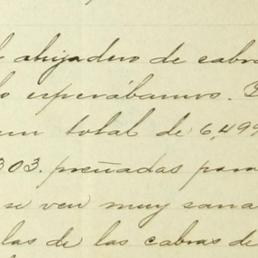 l ahijadero de cabra
lo esperábamos.
un total de 6,499
303. preñadas para
se ven muy sana
las de las cabras de